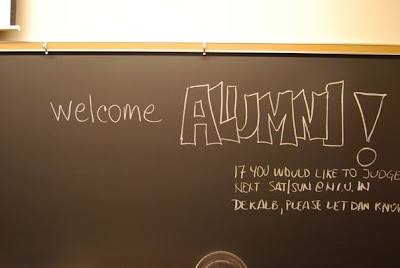 welcome ALUMNI!
IF YOU WOULD LIKE TO JUDGE
NEXT SAT/SUN @ N.I.U. IN
DEKALB, PLEASE LET DAN KNOW